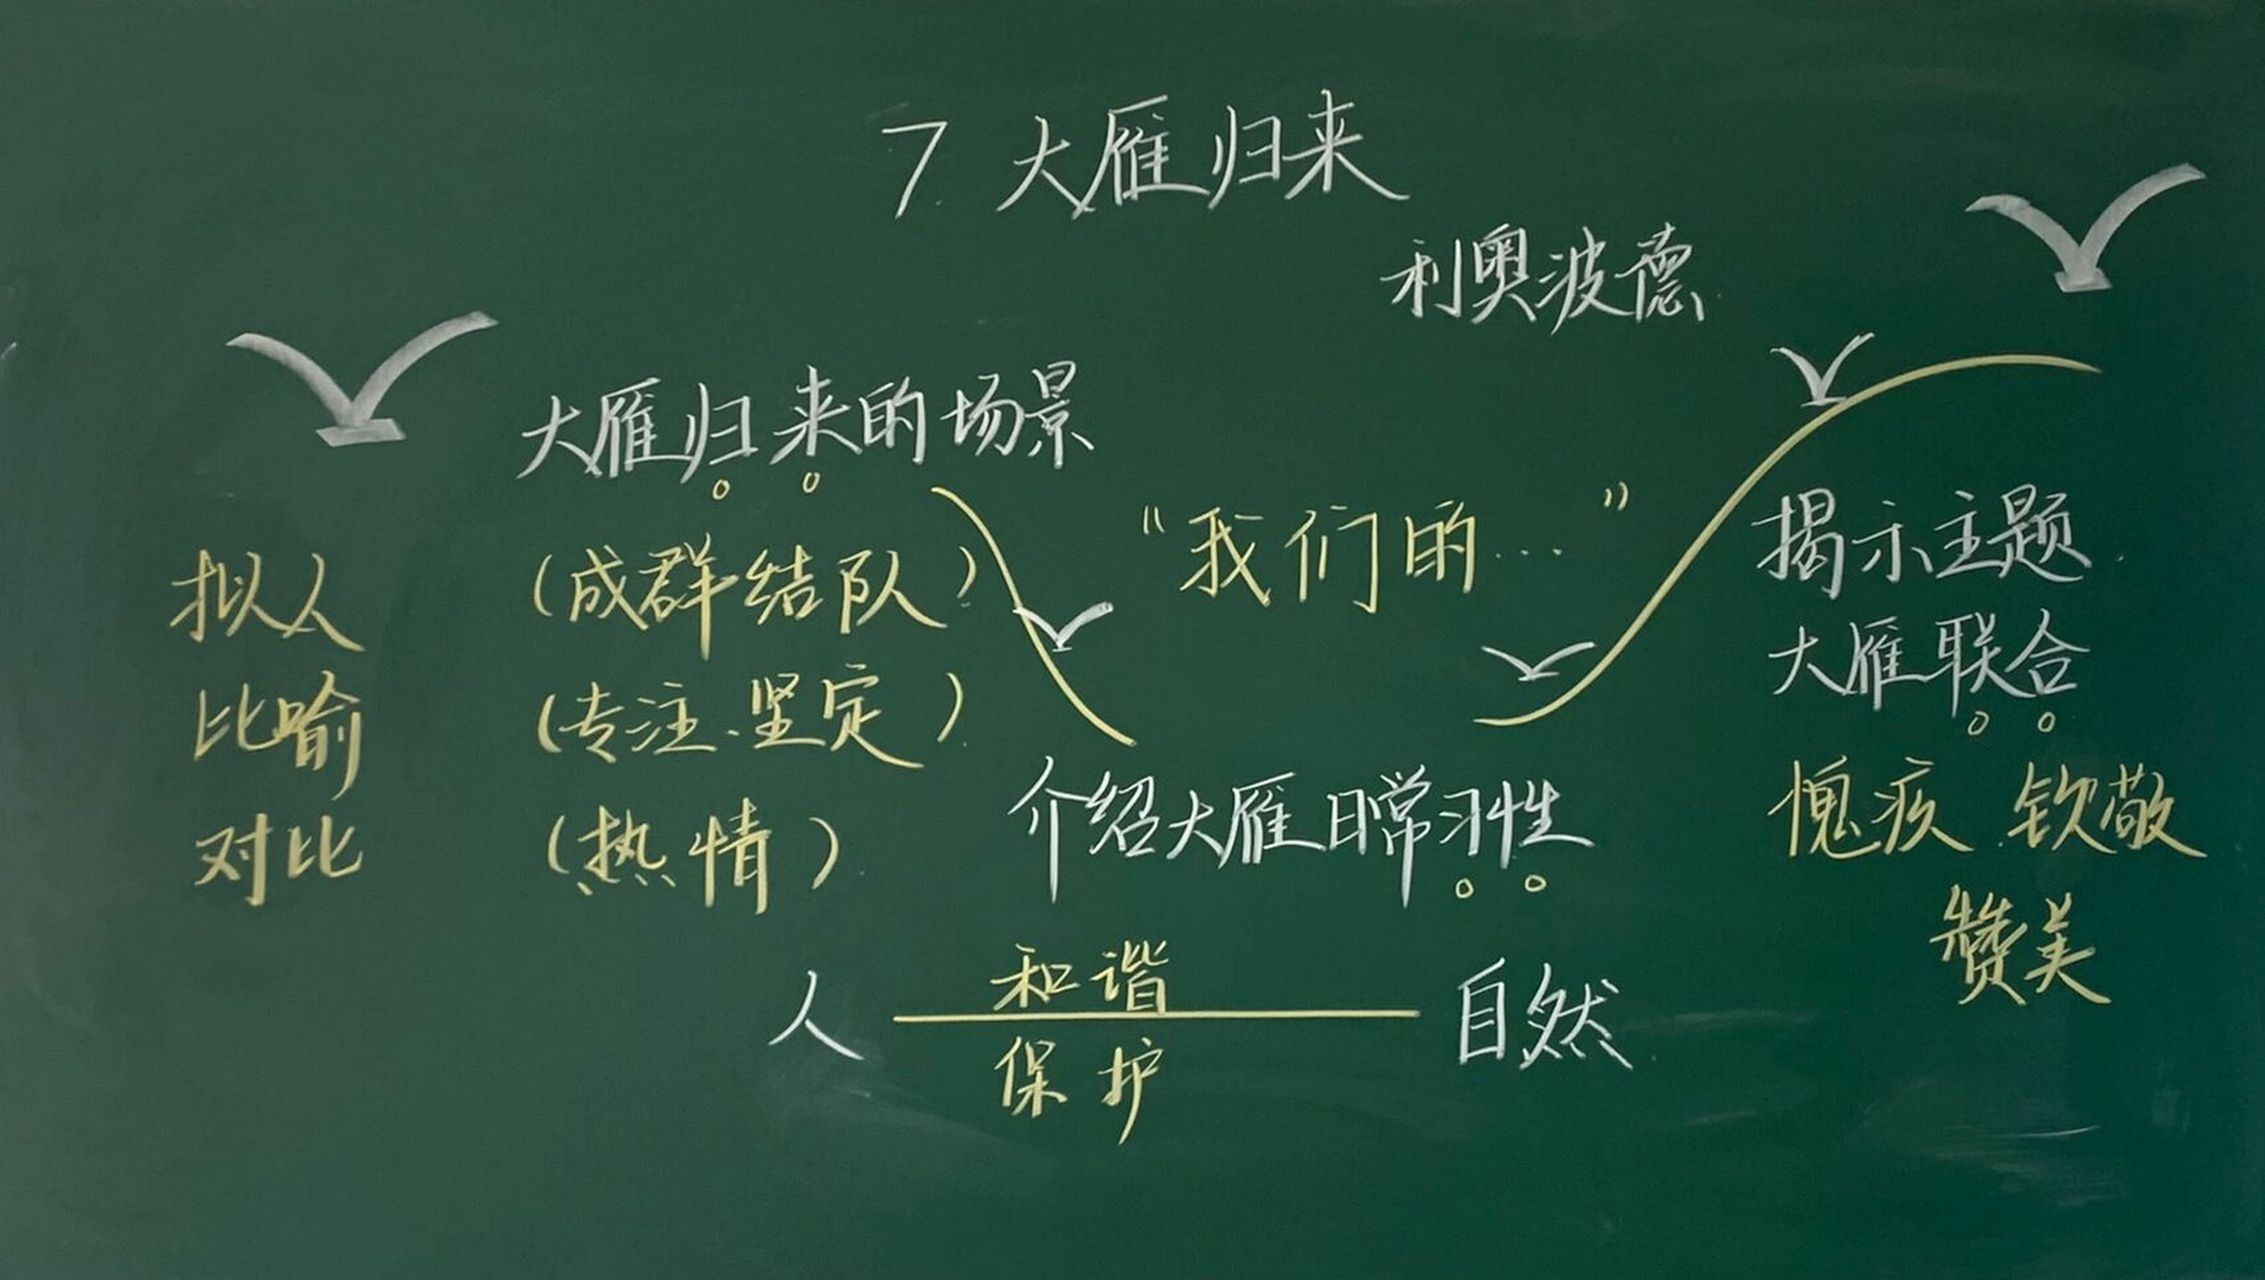 7 大雁归来
利奥波德
大雁归来的场景
拟人 (成群结队)
比喻 (专注、坚定)
对比 (热情)
“我们的…”
介绍大雁日常习性
揭示主题
大雁联合
愧疚 钦敬
赞美
人 和谐 自然
保护